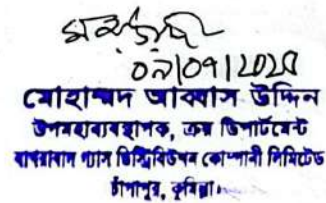 ০৯/০৭/২০২৫
মোহাম্মদ আব্বাস উদ্দিন
উপমহাব্যবস্থাপক, ক্রয় ডিপার্টমেন্ট
বাখরাবাদ গ্যাস ডিস্ট্রিবিউশন কোম্পানী লিমিটেড
চাঁপাপুর, কুমিল্লা।